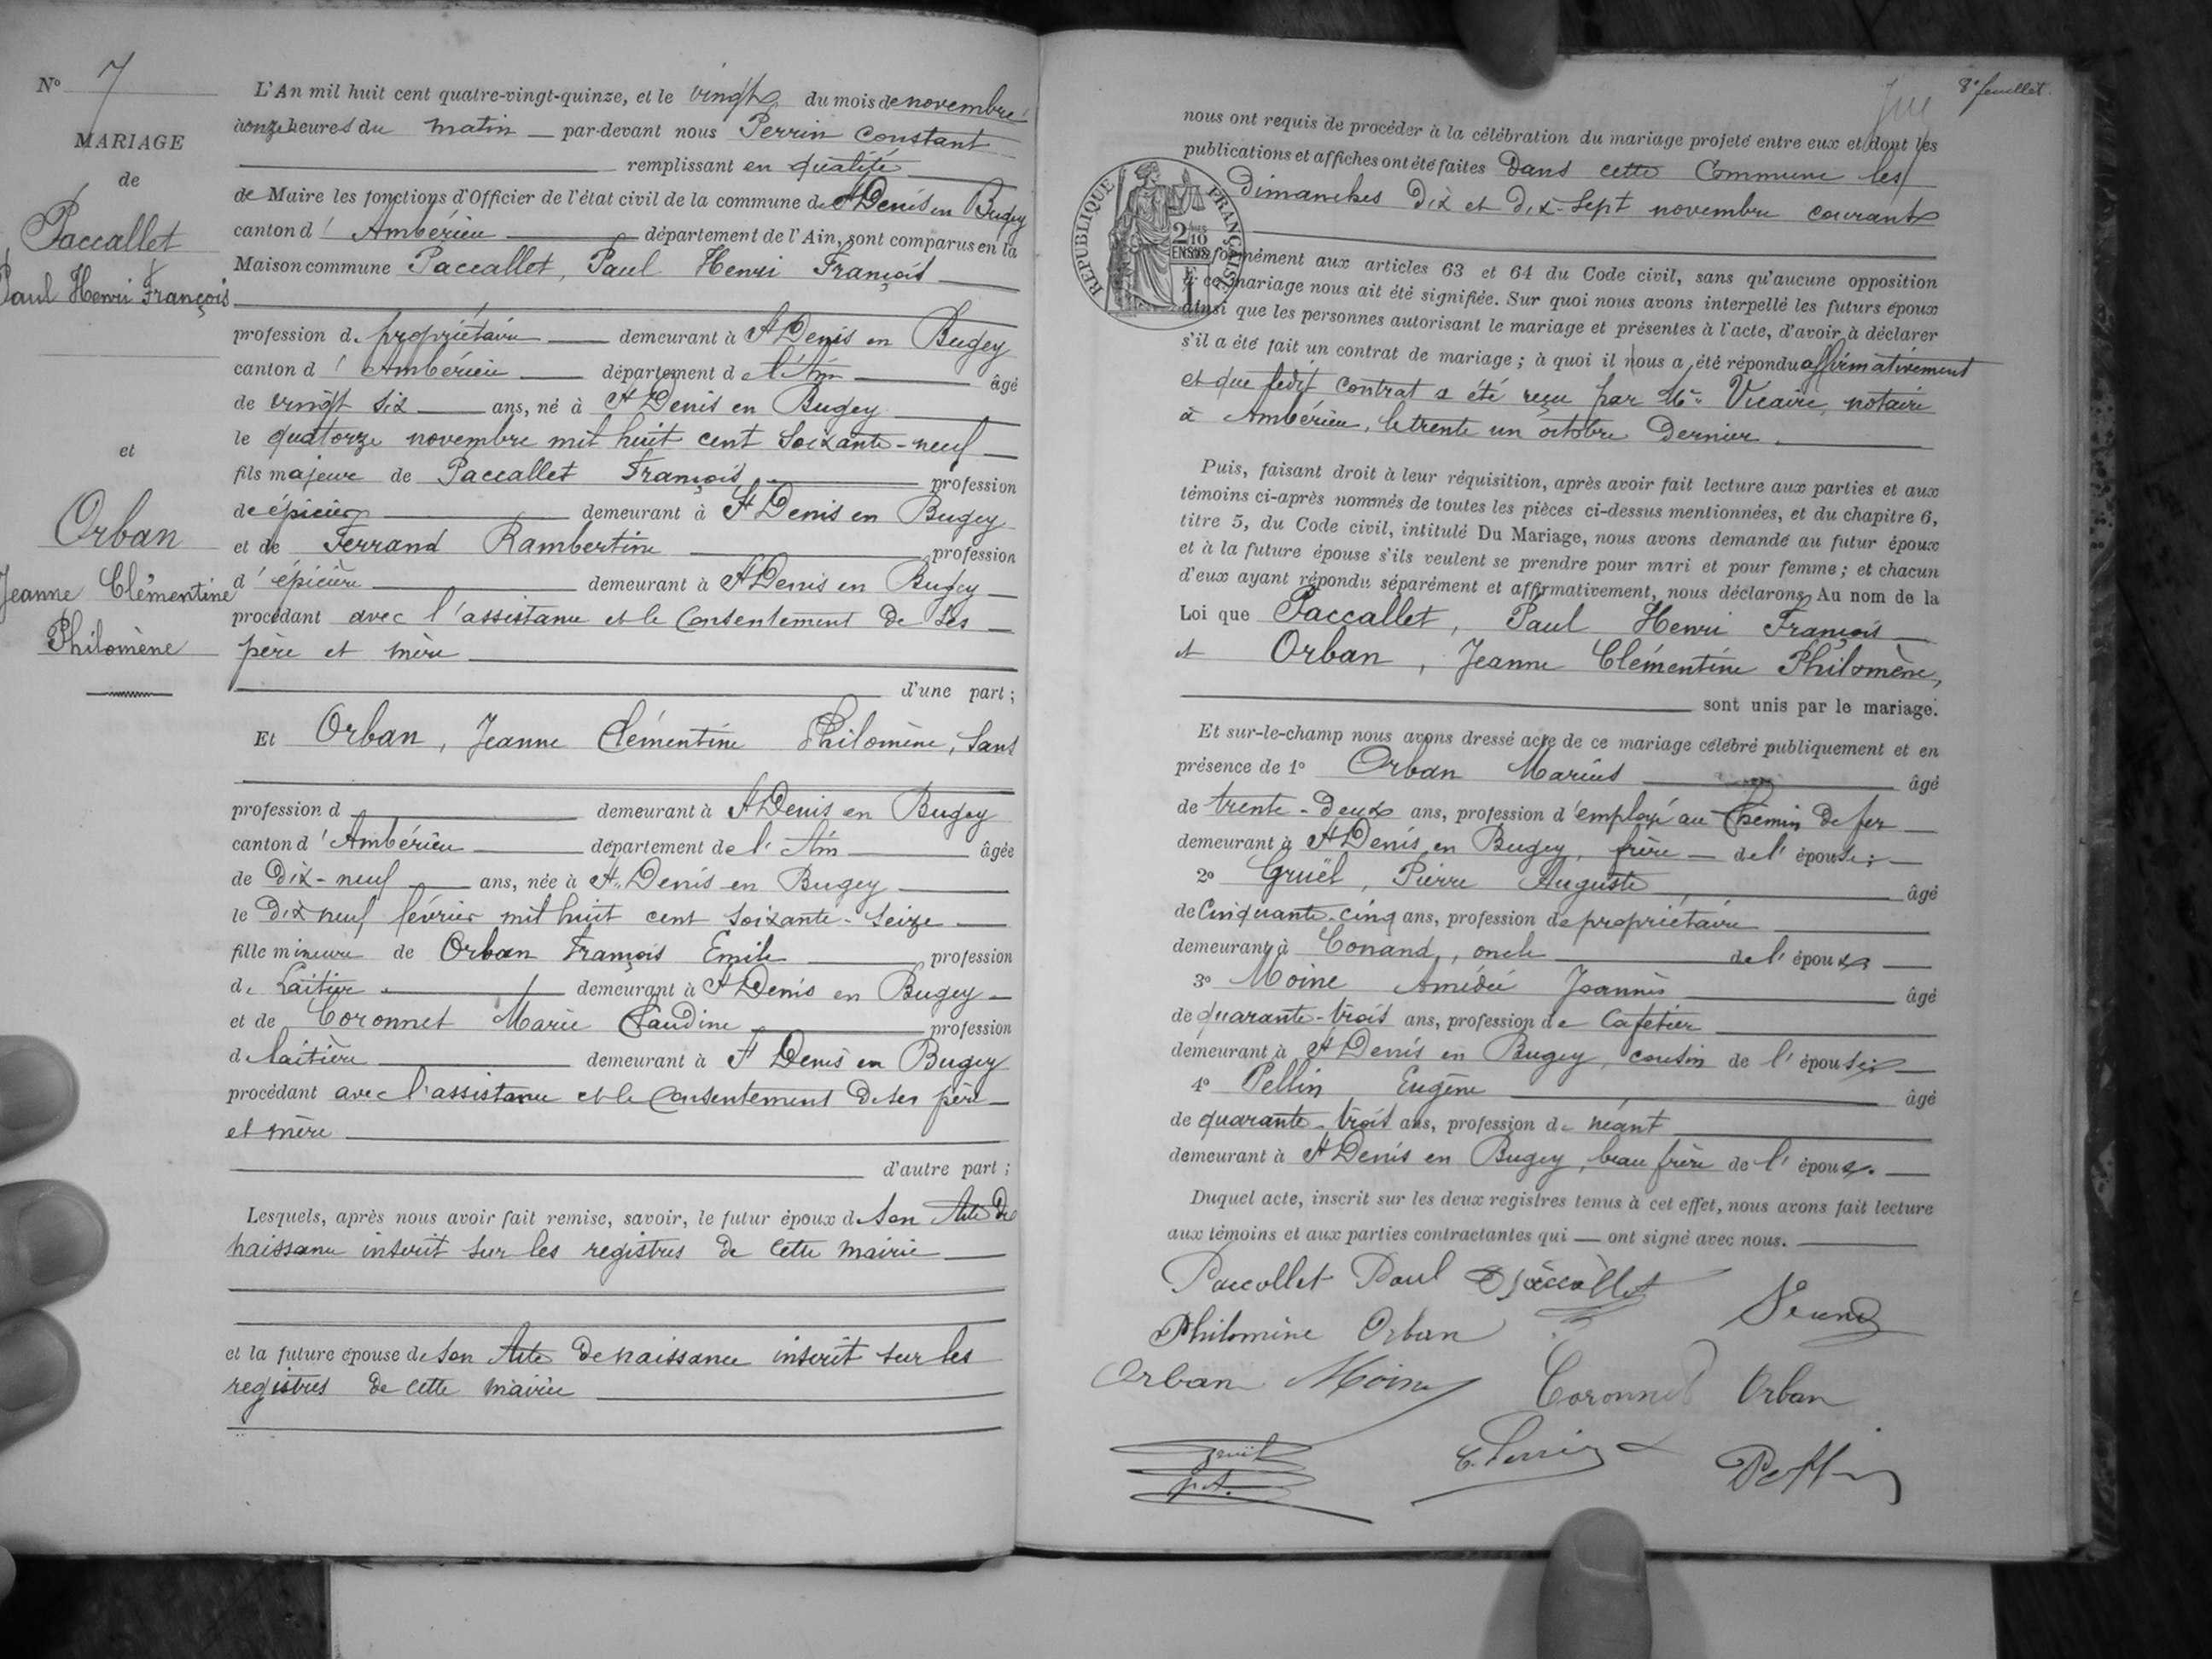 N° 7
MARIAGE
de
Paccallet
Paul Henri François
et
Orban
Jeanne Clémentine
Philomène
L'An mil huit cent quatre-vingt-quinze, et le vingt du mois de novembre
à onze heures du matin par-devant nous Perrin Constant
remplissant en qualité
de Maire les fonctions d'Officier de l'état civil de la commune de St Denis en Bugey
canton d' Ambérieu département de l'Ain, sont comparus en la
Maison commune Paccallet, Paul Henri François
profession de propriétaire demeurant à St Denis en Bugey
canton d' Ambérieu département de l'Ain âgé
de vingt six ans, né à St Denis en Bugey
le quatorze novembre mil huit cent soixante-neuf
fils majeur de Paccallet François profession
de épicier demeurant à St Denis en Bugey
et de Ferrand Rambertine profession
d' épicière demeurant à St Denis en Bugey
procédant avec l'assistance et le consentement de ses
père et mère
d'une part;
Et Orban, Jeanne Clémentine Philomène, sans
profession d demeurant à St Denis en Bugey
canton d' Ambérieu département de l' Ain âgée
de dix-neuf ans, née à St Denis en Bugey
le dix neuf février mil huit cent soixante-seize
fille mineure de Orban François Emile profession
de laitier demeurant à St Denis en Bugey
et de Coronnet Marie Claudine profession
de laitière demeurant à St Denis en Bugey
procédant avec l'assistance et le consentement de ses père
et mère
d'autre part;
Lesquels, après nous avoir fait remise, savoir, le futur époux de son acte de
naissance inscrit sur les registres de cette mairie
et la future épouse de son acte de naissance inscrit sur les
registres de cette mairie
8e feuillet.
nous ont requis de procéder à la célébration du mariage projeté entre eux et dont les
publications et affiches ont été faites dans cette commune les
dimanches dix et dix-sept novembre courant
RÉPUBLIQUE FRANÇAISE
2/10 EN SUS
conformément aux articles 63 et 64 du Code civil, sans qu'aucune opposition
à ce mariage nous ait été signifiée. Sur quoi nous avons interpellé les futurs époux
ainsi que les personnes autorisant le mariage et présentes à l'acte, d'avoir à déclarer
s'il a été fait un contrat de mariage; à quoi il nous a été répondu affirmativement
et que ledit contrat a été reçu par Me Vicaire, notaire
à Ambérieu, le trente un octobre dernier.
Puis, faisant droit à leur réquisition, après avoir fait lecture aux parties et aux
témoins ci-après nommés de toutes les pièces ci-dessus mentionnées, et du chapitre 6,
titre 5, du Code civil, intitulé Du Mariage, nous avons demandé au futur époux
et à la future épouse s'ils veulent se prendre pour mari et pour femme; et chacun
d'eux ayant répondu séparément et affirmativement, nous déclarons Au nom de la
Loi que Paccallet, Paul Henri François
et Orban, Jeanne Clémentine Philomène,
sont unis par le mariage.
Et sur-le-champ nous avons dressé acte de ce mariage célébré publiquement et en
présence de 1° Orban Marius âgé
de trente-deux ans, profession d'employé au chemin de fer
demeurant à St Denis en Bugey, frère de l' épouse;
2° Gruël, Pierre Auguste âgé
de cinquante-cinq ans, profession de propriétaire
demeurant à Conand, oncle de l' époux
3° Moine Amédée Joannès âgé
de quarante-trois ans, profession de cafetier
demeurant à St Denis en Bugey, cousin de l' épouse
4° Pellin Eugène âgé
de quarante-trois ans, profession de néant
demeurant à St Denis en Bugey, beau frère de l' époux.
Duquel acte, inscrit sur les deux registres tenus à cet effet, nous avons fait lecture
aux témoins et aux parties contractantes qui ont signé avec nous.
Paccollet Paul Paccallet
Philomène Orban
Orban Moine Coronnet Orban
Gruël
p.A. C. Perrin Pellin